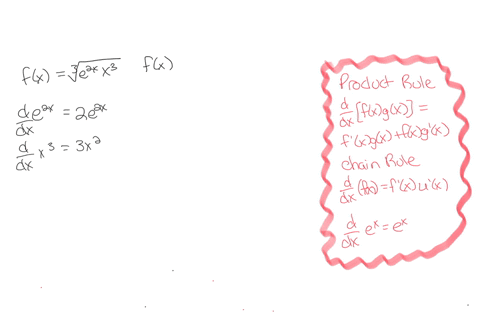 f(x) = ∛(e^{2x} x^3) f(x)
d/dx e^{2x} = 2e^{2x}
d/dx x^3 = 3x^2
Product Rule
d/dx [f(x)g(x)] =
f'(x)g(x) + f(x)g'(x)
Chain Rule
d/dx (f(x)) = f'(x) u'(x)
d/dx e^x = e^x